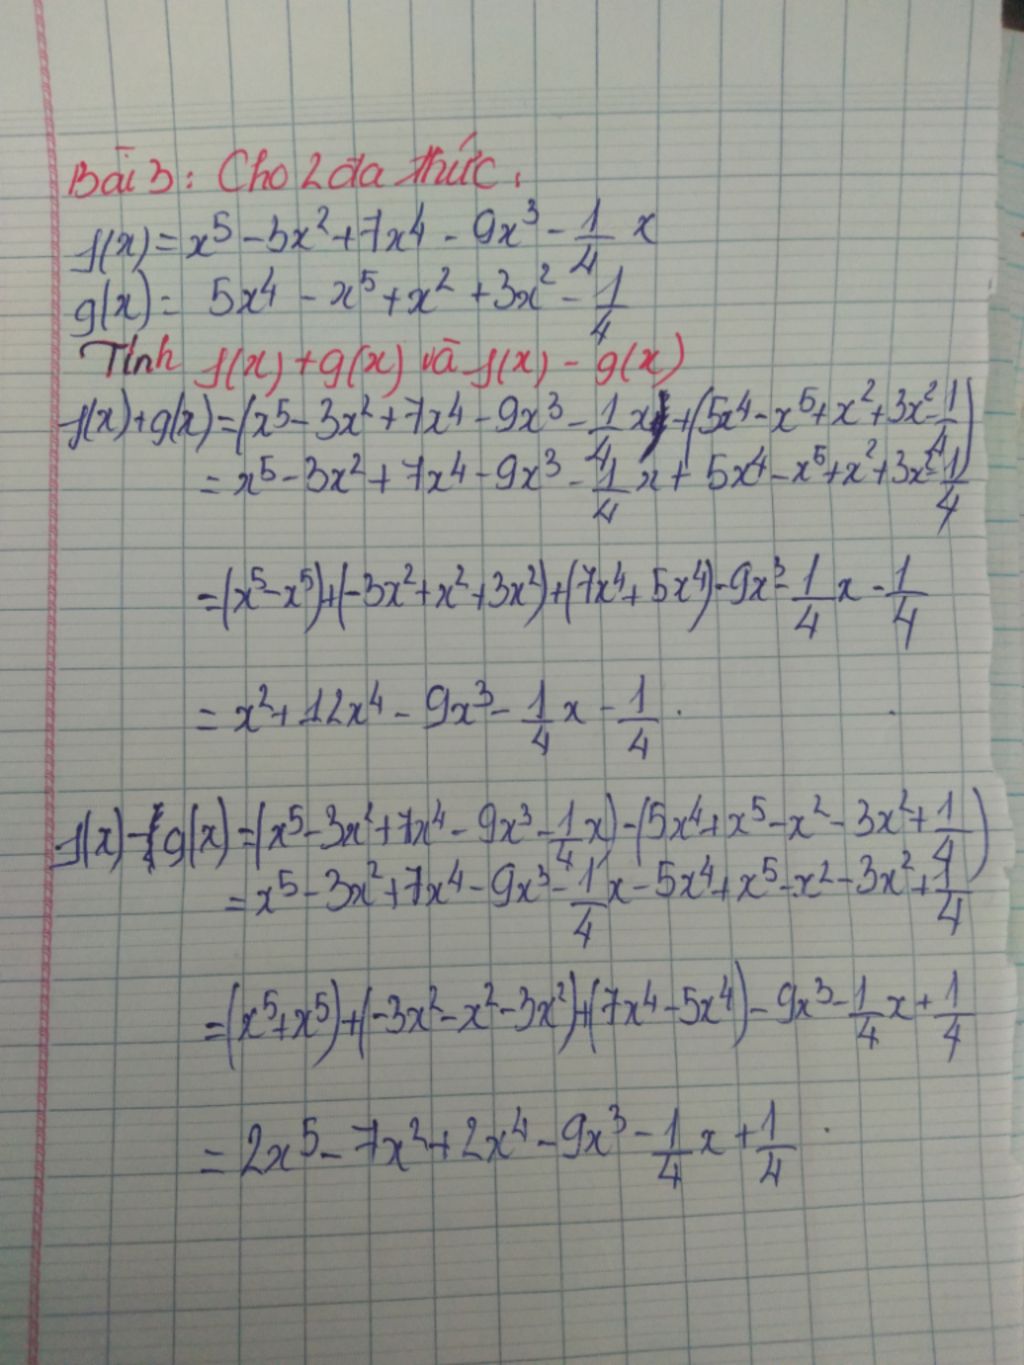 Bài 3: Cho 2 đa thức.
f(x) = x⁵ - 3x² + 7x⁴ - 9x³ - 1/4 x
g(x) = 5x⁴ - x⁵ + x² + 3x² - 1/4
Tính f(x) + g(x) và f(x) - g(x)
f(x) + g(x) = (x⁵ - 3x² + 7x⁴ - 9x³ - 1/4 x) + (5x⁴ - x⁵ + x² + 3x² - 1/4)
= x⁵ - 3x² + 7x⁴ - 9x³ - 1/4 x + 5x⁴ - x⁵ + x² + 3x² - 1/4
= (x⁵ - x⁵) + (-3x² + x² + 3x²) + (7x⁴ + 5x⁴) - 9x³ - 1/4 x - 1/4
= x² + 12x⁴ - 9x³ - 1/4 x - 1/4.
f(x) - g(x) = (x⁵ - 3x² + 7x⁴ - 9x³ - 1/4 x) - (5x⁴ + x⁵ - x² - 3x² + 1/4)
= x⁵ - 3x² + 7x⁴ - 9x³ - 1/4 x - 5x⁴ + x⁵ - x² - 3x² + 1/4
= (x⁵ + x⁵) + (-3x² - x² - 3x²) + (7x⁴ - 5x⁴) - 9x³ - 1/4 x + 1/4
= 2x⁵ - 7x² + 2x⁴ - 9x³ - 1/4 x + 1/4.